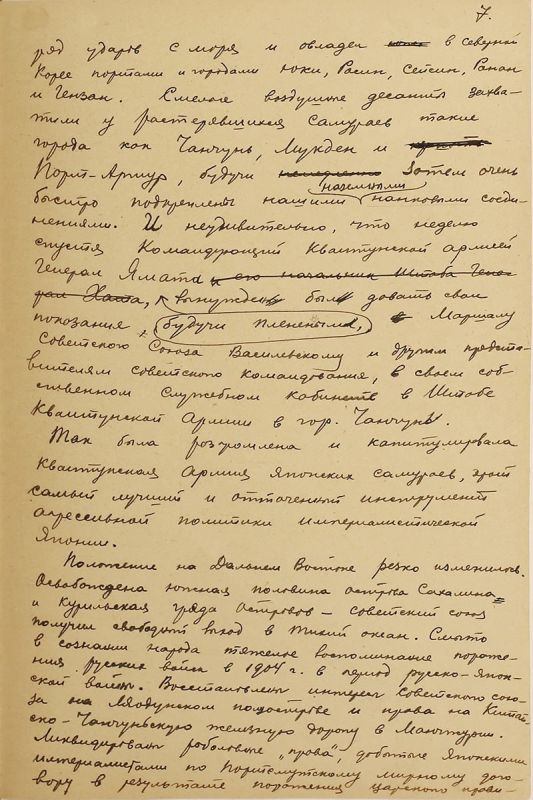 7.
ряд ударов с моря и овладел в северной
Корее портами и городами Юки, Расин, Сейсин, Ранан
и Гензан. Смелые воздушные десанты захва-
тили у растерявшихся самураев такие
города как Чанчунь, Мукден и
Порт-Артур, будучи затем очень
наземными
быстро подкреплены нашими танковыми соеди-
нениями. И неудивительно, что неделю
спустя Командующий Квантунской армией
Генерал Ямата и его начальник Штаба Гене-
рал Хата, вынужден был давать свои
показания, будучи плененым, Маршалу
Советского Союза Васильевскому и другим предста-
вителям советского командования, в своем соб-
ственном служебном кабинете в Штабе
Квантунской Армии в гор. Чанчунь.
Так была разгромлена и капитулировала
Квантунская Армия Японских самураев, этот
самый лучший и отточенный инструмент
агрессивной политики империалистической
Японии.
Положение на Дальнем Востоке резко изменилось.
Освобождена южная половина острова Сахалина
и Курильская гряда Островов – Советский союз
получил свободный выход в Тихий океан. Смыто
в сознании народа тяжелое воспоминание пораже-
ния русских войск в 1904 г. в период русско-япон-
ской войны. Восстановлены интересы Советского сою-
за на Ляодунском полуострове и права на Китай-
ско-Чанчуньскую железную дорогу в Манчжурии.
Ликвидированы разбойные „права", добытые Японскими
империалистами по Портсмутскому мирному дого-
вору в результате поражения царского прави-